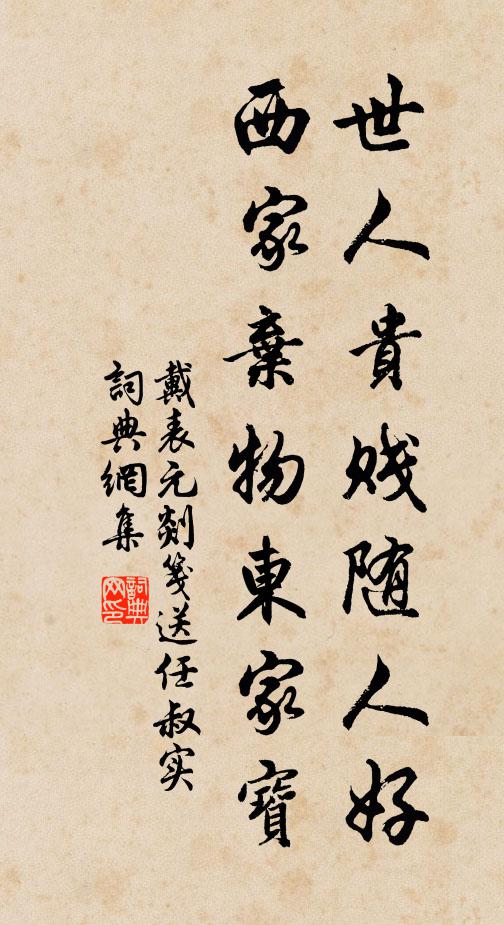 世人貴贱随人好
西家棄物東家寶
戴表元剡箋送任叔实
詞典網集
詞典网印